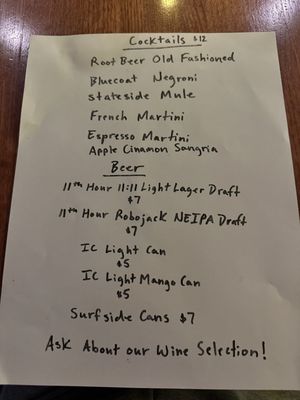 Cocktails $12
Root Beer Old Fashioned
Bluecoat Negroni
Stateside Mule
French Martini
Espresso Martini
Apple Cinamon Sangria
Beer
11th Hour 11:11 Light Lager Draft
$7
11th Hour Robojack NEIPA Draft
$7
IC Light Can
$5
IC Light Mango Can
$5
Surfside Cans $7
Ask About our Wine Selection!